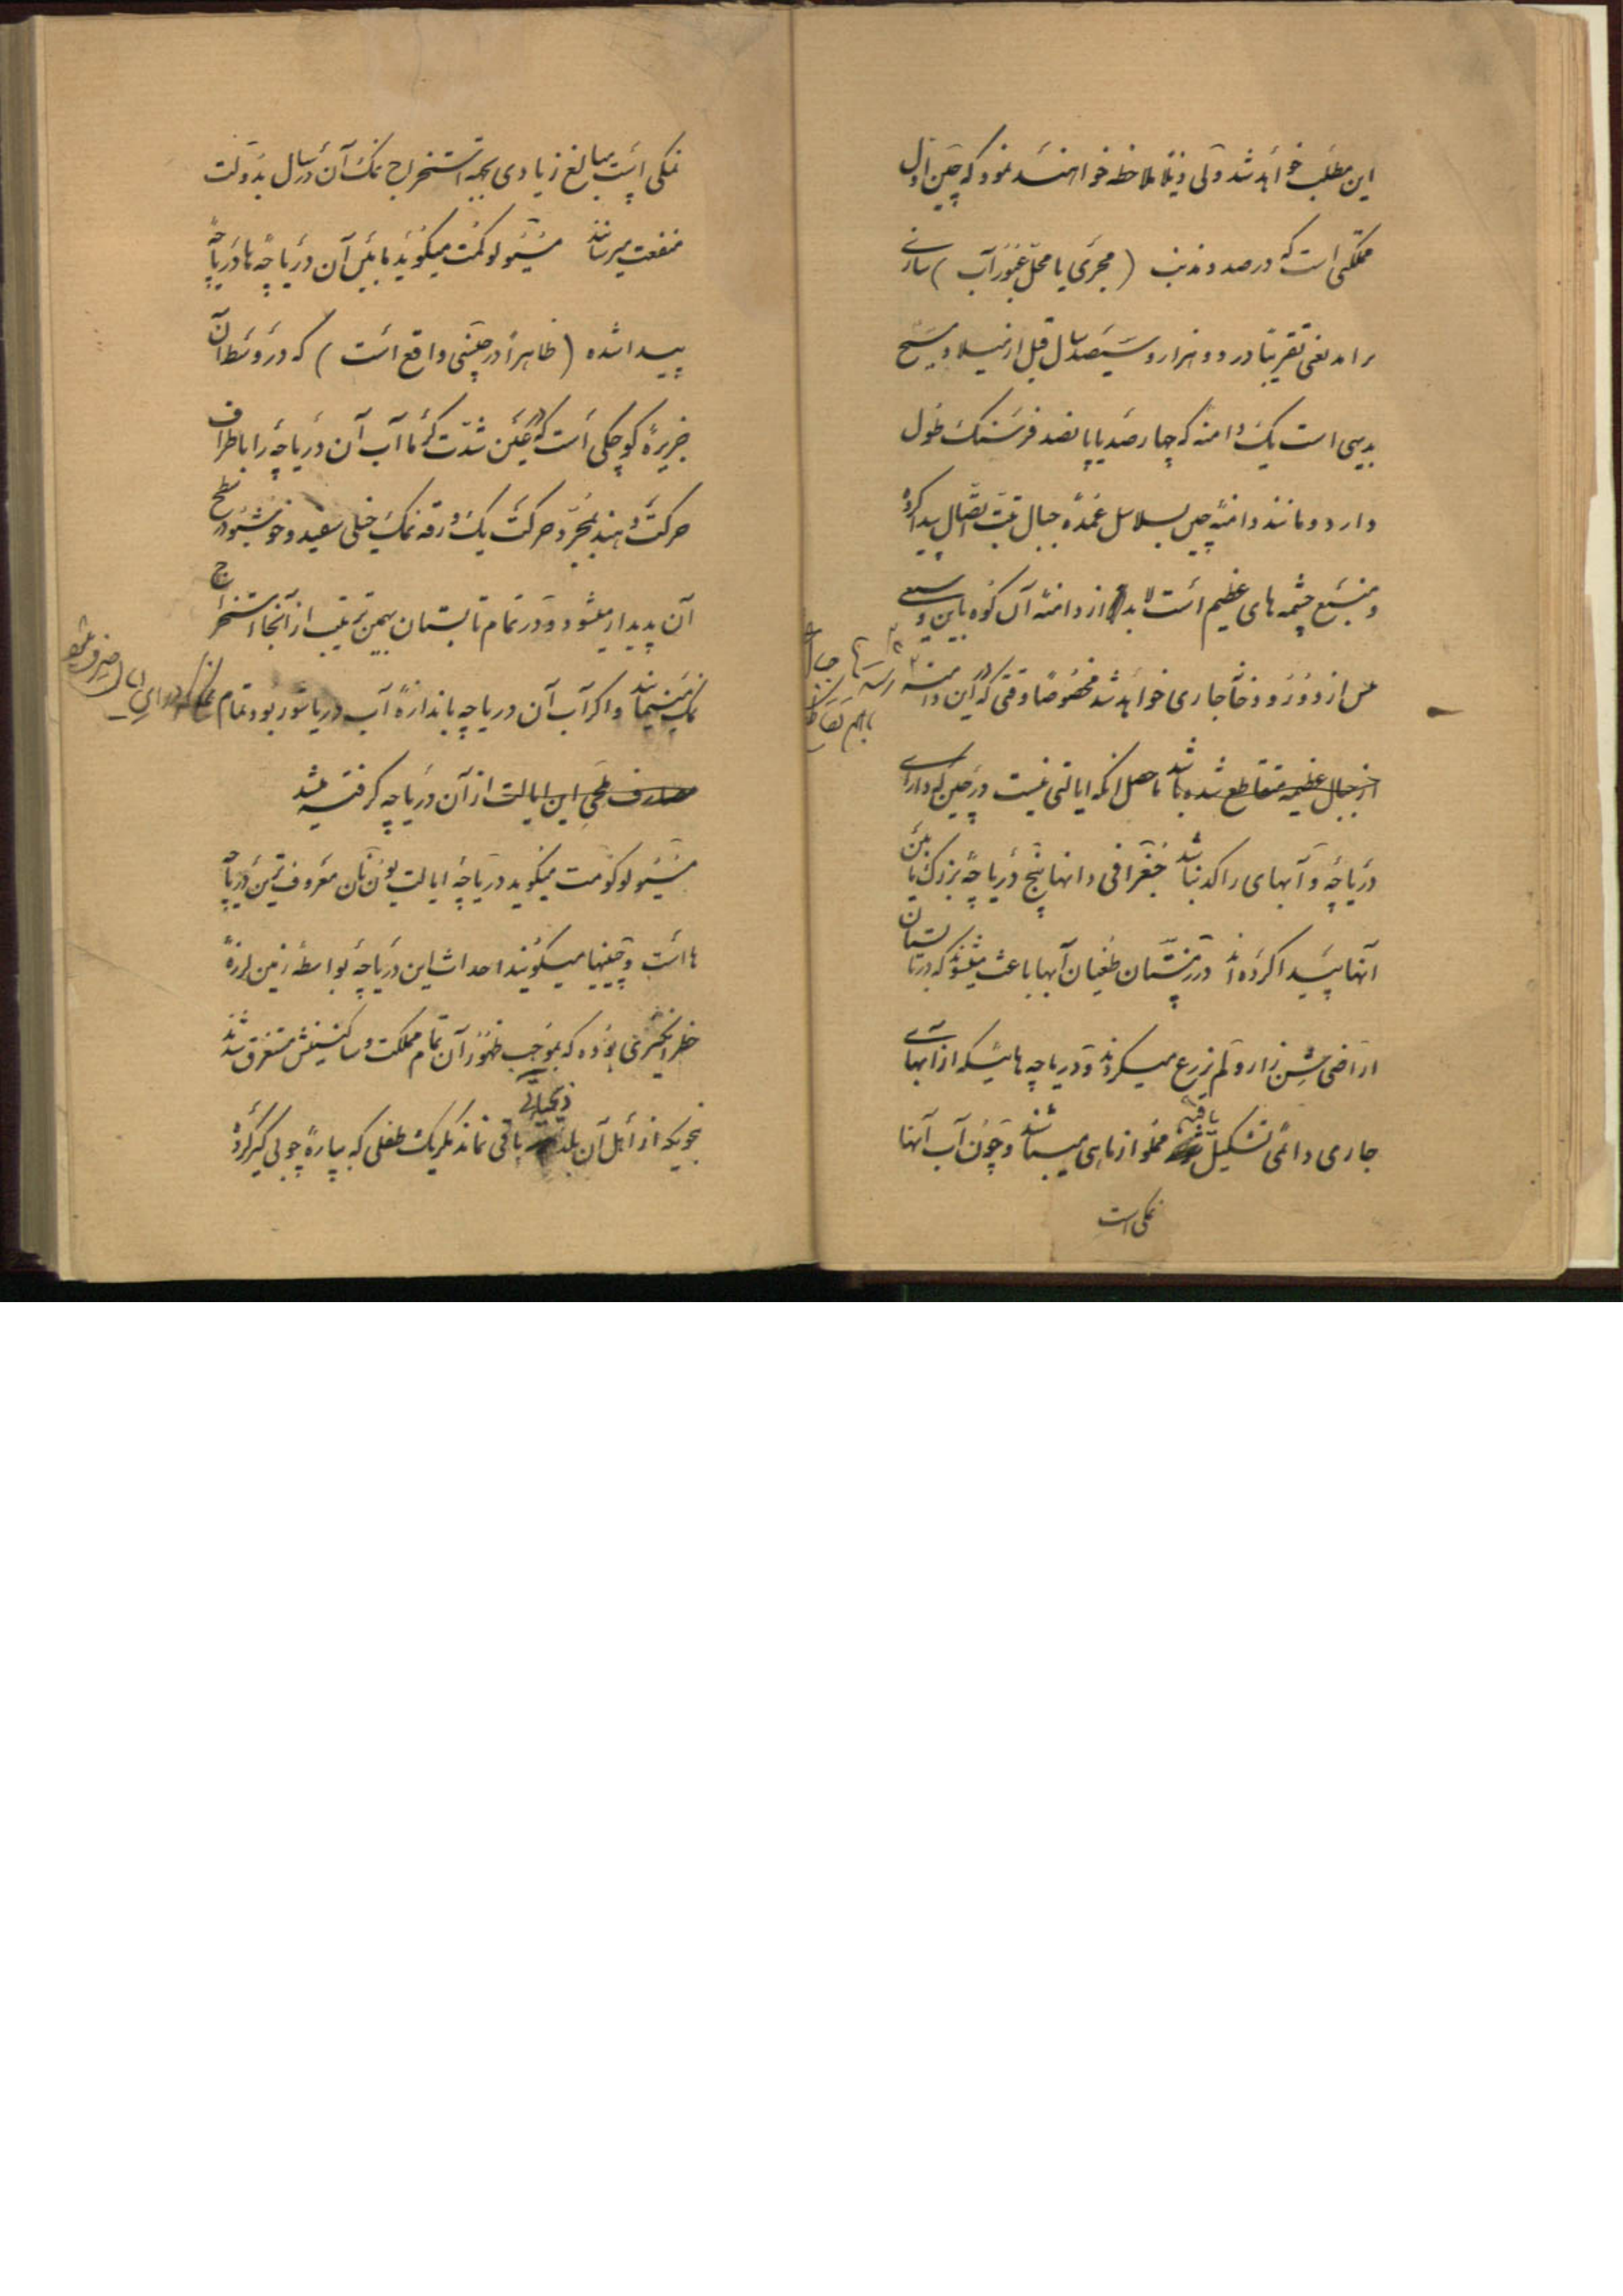 این مطلب خواهد شد ولی ذیلا ملاحظه خواهند نمود که چین اول
مملکتی است که درصدد مذنب (مجری یا محل عبور آب) سازی
برامد یعنی تقریبا در دو هزار و سیصد سال قبل از میلاد مسیح
بدیهی است یک دامنه که چهار صد یا پانصد فرسنک طول
دارد و مانند دامنه چین بسلاسل عمده جبال تبت اتصال پیدا کرده
و منبع چشمه های عظیم است لابد از دامنه آن کوه پایین و
پس از دو رود خانه جاری خواهد شد مخصوصا وقتی که در این دامنه
رشته جبال
باهم تقاطع
از جبال عظیمه متقاطع شده باشد حاصل انکه ایالتی نیست در چین که دارای
دریاچه و آبهای راکد نباشد جغرافی دانها پنج دریاچه بزرک یا بین
آنها پیدا کرده اند در زمستان طغیان آبها باعث میشود که در تابستان
اراضی شن زار و لم یزرع میکردند و دریاچه هائیکه از آبهای
جاری دائمی تشکیل یافته مملو از ماهی میباشند و چون آب آنها
نمکی است
نمکی است مبالغ زیادی بجهة استخراج نمک آن در سال بدولت
منفعت میرسانند مسیو لوکمت میکوید مابین آن دریاچه ها دریاچه
پیدا شده (ظاهرا در چنسی واقع است) که در وسط آن
جزیره کوچکی است که در عین شدت کرما آب آن دریاچه را باطراف
حرکت دهند بمجرد حرکت یک ورقه نمک خیلی سفید و خوشبو در سطح
آن پدیدار میشود و در تمام تابستان بهمین ترتیب از آنجا استخراج
نمک مینمایند و اکر آب آن دریاچه باندازه آب دریا شور بود تمام
مصارف ملحی این ایالت از آن دریاچه کرفته میشد
مسیو لوکومت میکوید دریاچه ایالت یون نان معروف ترین دریاچه
ها است و چینیها میکویند احداث این دریاچه بواسطه زمین لرزه
خطر انکیزی بوده که بموجب ظهور آن تمام مملکت و ساکنینش مستغرق شدند
ذیحیاتی
بنحویکه از اهل آن بلد باقی نماند مکر یک طفلی که بپاره چوبی کیر کرده